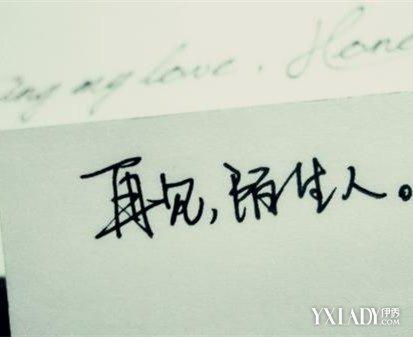 ing my love. Hone
再见,陌生人。
YXLADY伊秀
.COM